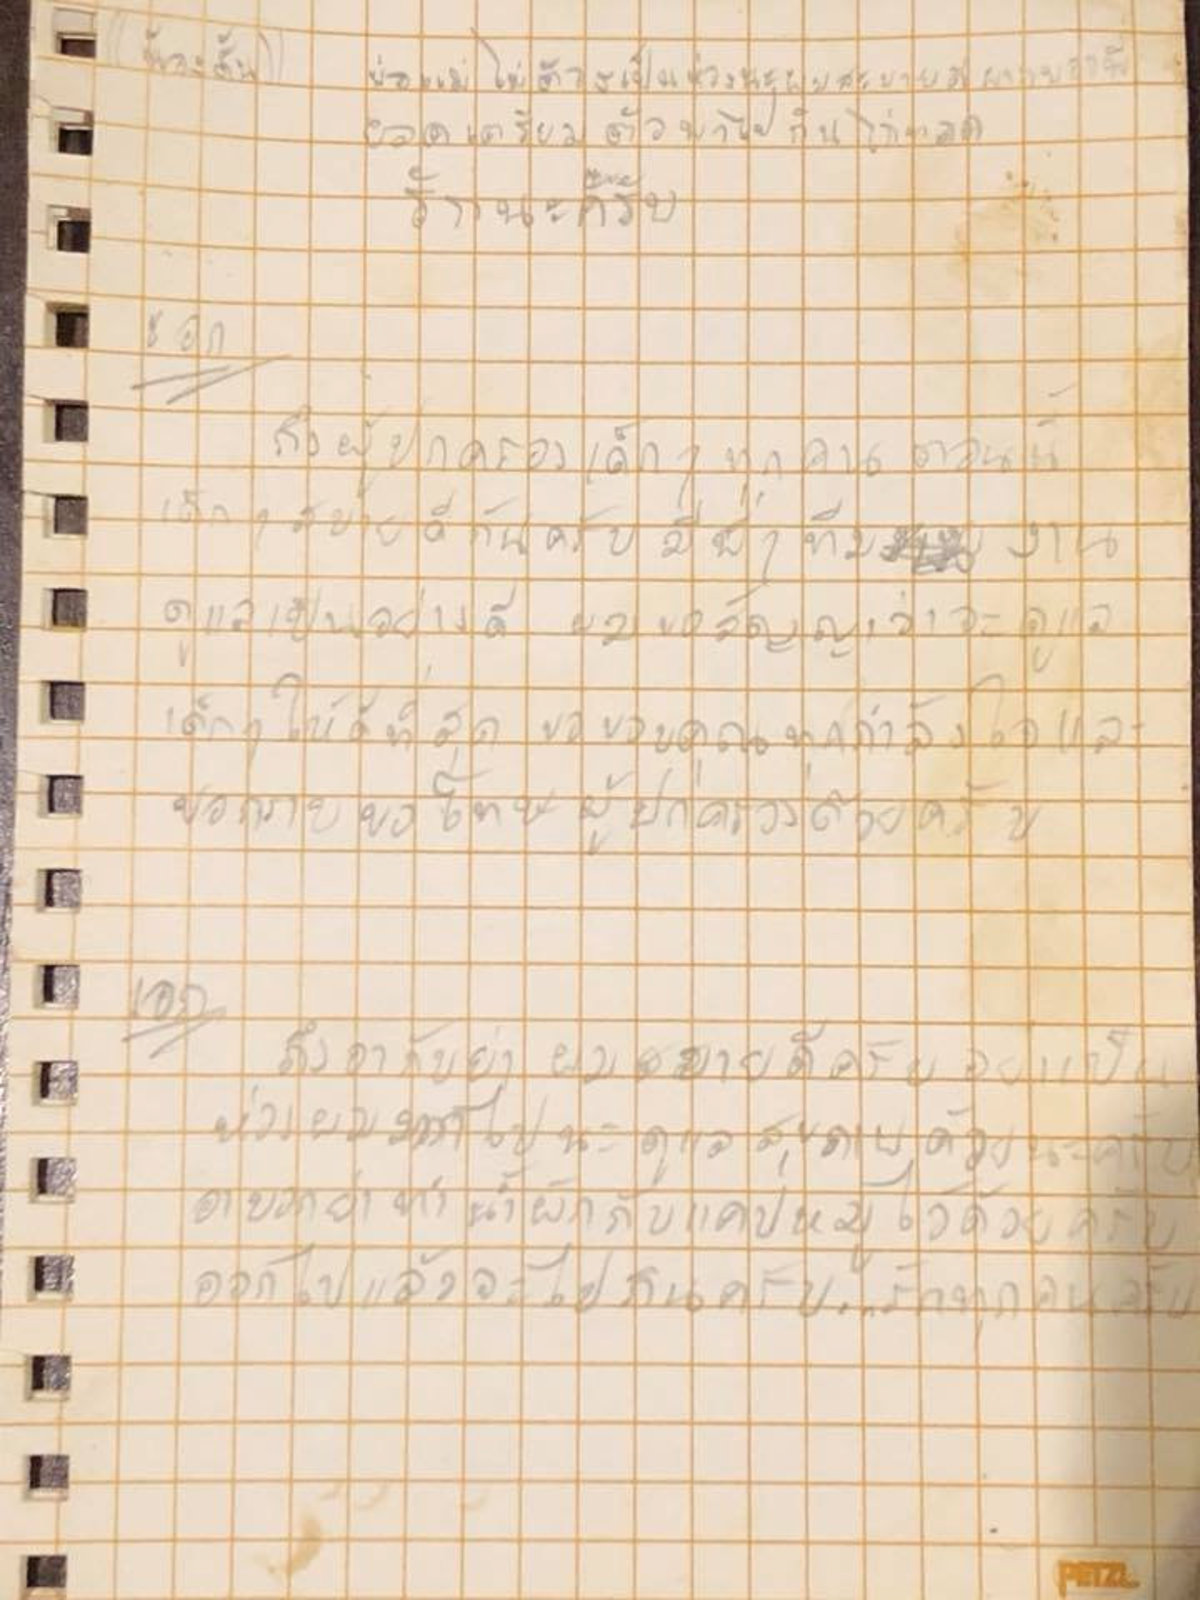 ((น้องตั้น)) พ่อแม่ ไม่ต้องเป็นห่วงนะผมสบายดี
ยอดเตรียมตัวพาไปกินไก่ทอด
ด้วนะครับ
เอก
ถึงผู้ปกครองเด็กๆ ทุกคน ตอนนี้
เด็กๆ สบายดีกันครับ มีพี่ๆ ทีม งาน
ดูแลเป็นอย่างดี ผมขอสัญญาว่าจะดูแล
เด็กๆ ให้ดีที่สุด ขอขอบคุณทุกกำลังใจและ
ขอกราบขอโทษผู้ปกครองด้วยครับ
เอก
ถึงอากับย่า ผมสบายดีครับ อย่าเป็น
ห่วงผม ไปนะ ดูแลสุขภาพด้วยนะครับ
อาบอกย่าทำน้ำผักกับแคปหมูไว้ด้วยครับ
ออกไปแล้วจะไปกินครับ...รักทุกคนครับ
PETZL